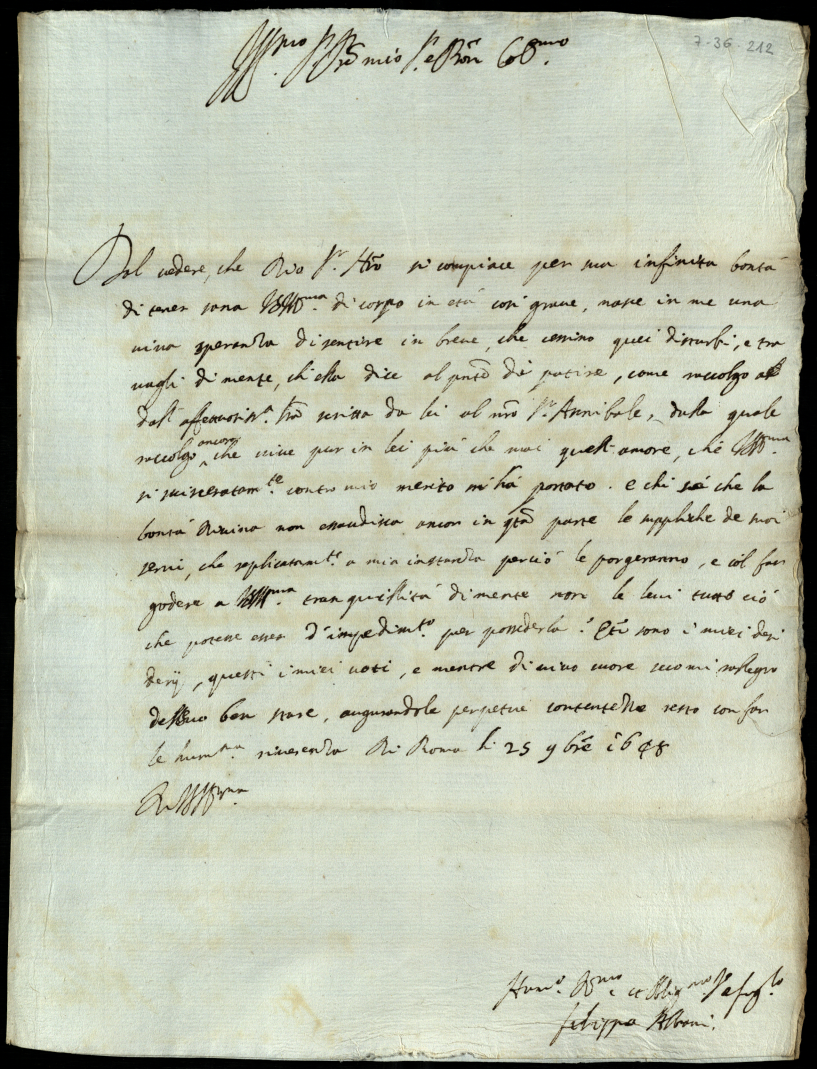 7-36-212
Ill.mo S.r P̃ro mio S.r e P̃ron Col.mo
Dal vedere, che Dio S.r Nr̃o si compiace per sua infinita bontà
di tener sana V.S.Ill.ma di corpo in età così grave, nasce in me una
viva speranza di sentire in breve, che cessino quei disturbi, e tra
vagli di mente, ch'ella dice al pñte di patire, come raccolgo
dall' affettuosiss.a lr̃a scritta da lei al nr̃o S.r Annibale, dalla quale
raccolgo ancora che vive pur in lei più che mai quell'amore, che V.S.Ill.ma
si svisceratam.te contro mio merito mi hà portato. e chi sà che la
bontà Divina non essaudisca ancor in q̃ta parte le suppliche de suoi
servi, che replicatam.te a mia instanza perciò le porgeranno, e col far
godere a V.S.Ill.ma tranquillità di mente non le levi tutto ciò
che potesse esser d'impedim.to per possederla? Q̃ti sono i miei desi
derij, questi i miei voti, e mentre di vivo cuore seco mi rallegro
del suo ben stare, augurandole perpetue contentezze resto con far
le hum.ma riverenza Di Roma li 25 9bre 1648
Di V.S.Ill.ma
Hum.o D.mo et Obblig.mo S.re e fig.lo
Filippo Albani.